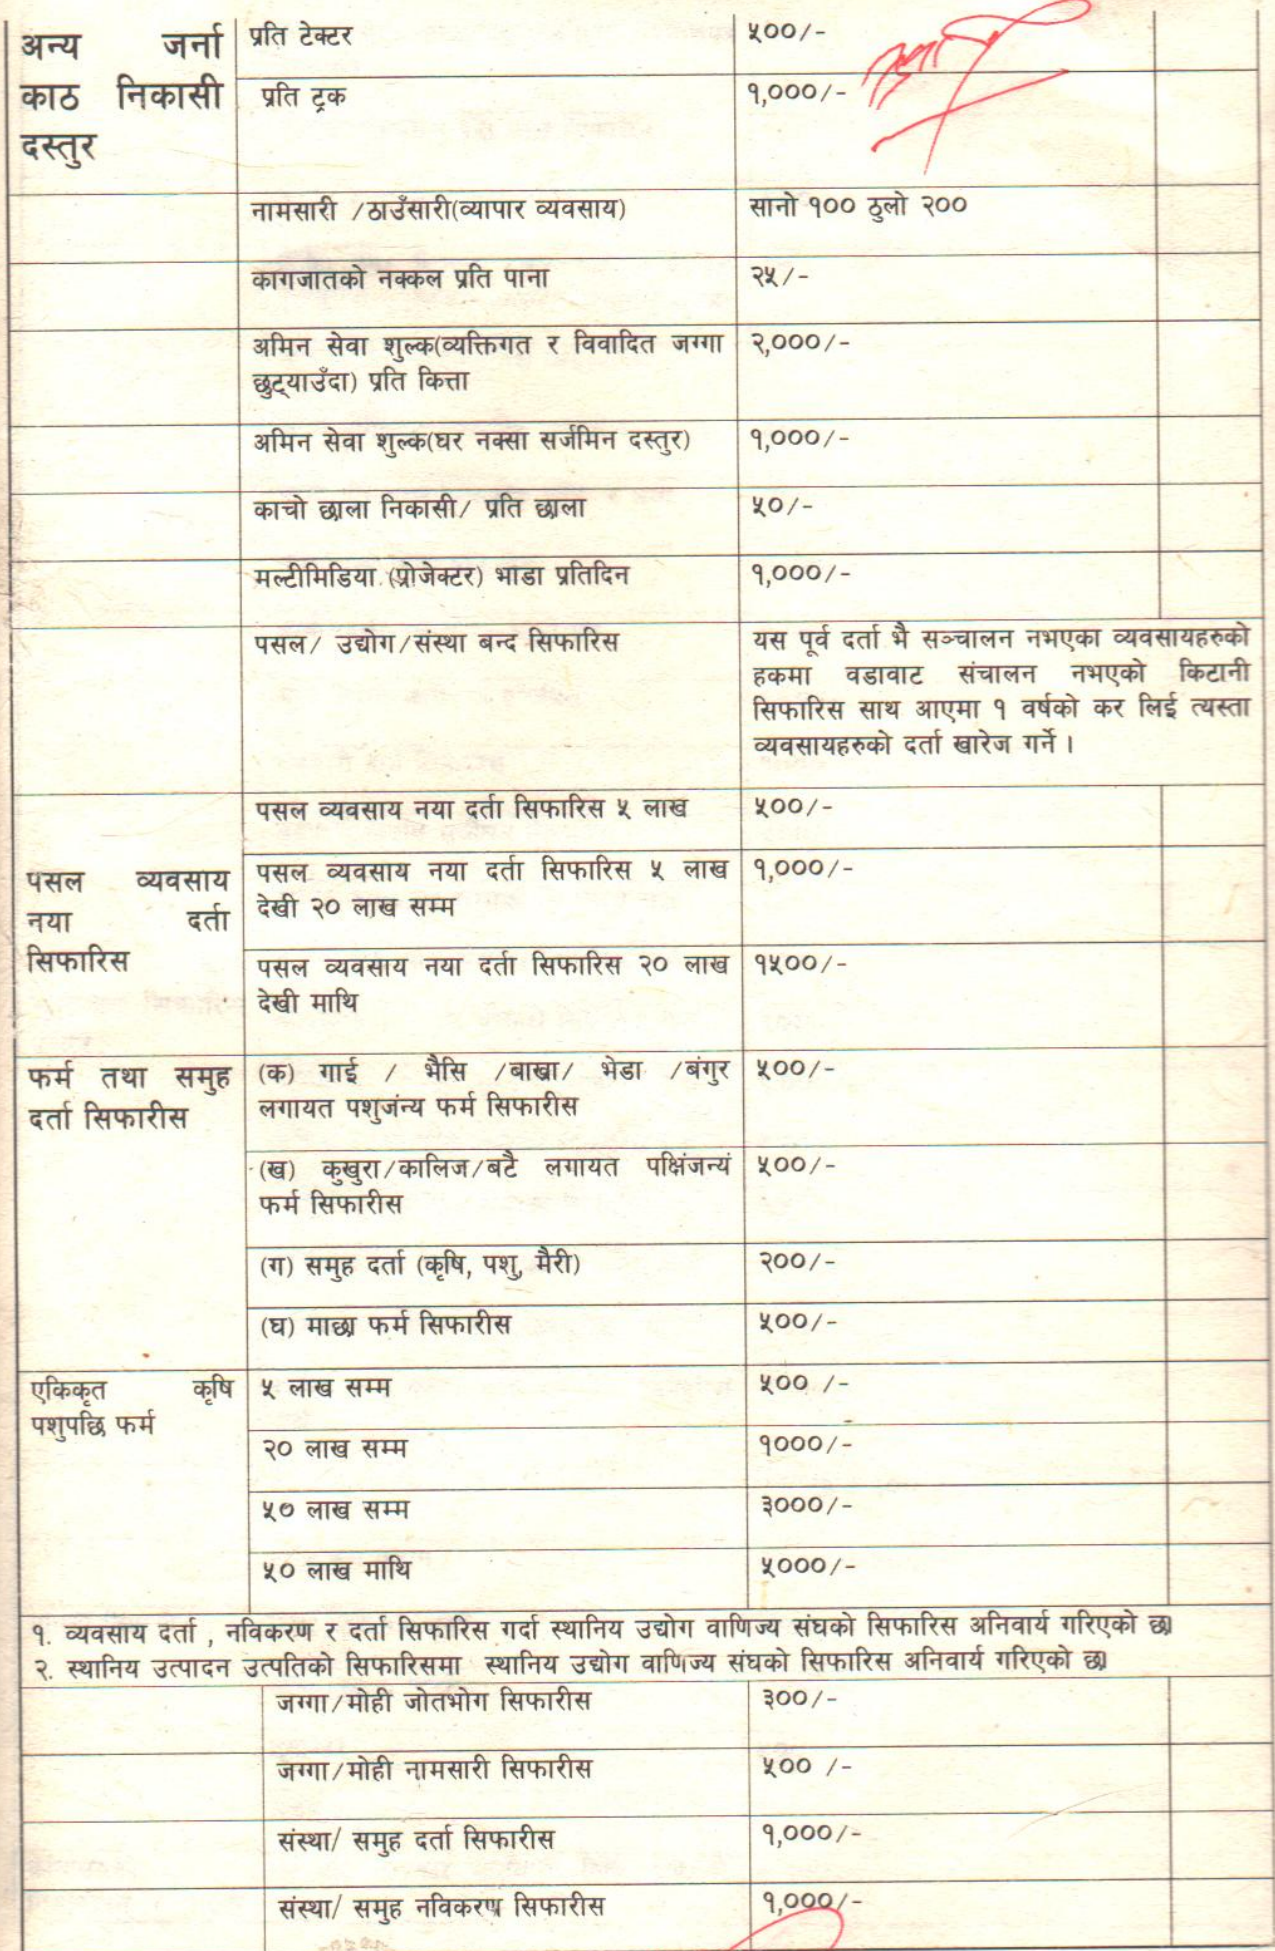 अन्य जर्ना
काठ निकासी
दस्तुर
प्रति टेक्टर ५००/-
प्रति ट्रक १,०००/-
नामसारी /ठाउँसारी(व्यापार व्यवसाय) सानो १०० ठुलो २००
कागजातको नक्कल प्रति पाना २५/-
अमिन सेवा शुल्क(व्यक्तिगत र विवादित जग्गा २,०००/-
छुट्याउँदा) प्रति कित्ता
अमिन सेवा शुल्क(घर नक्सा सर्जमिन दस्तुर) १,०००/-
काचो छाला निकासी/ प्रति छाला ५०/-
मल्टीमिडिया (प्रोजेक्टर) भाडा प्रतिदिन १,०००/-
पसल/ उद्योग/संस्था बन्द सिफारिस
यस पूर्व दर्ता भै सञ्चालन नभएका व्यवसायहरुको
हकमा वडावाट संचालन नभएको किटानी
सिफारिस साथ आएमा १ वर्षको कर लिई त्यस्ता
व्यवसायहरुको दर्ता खारेज गर्ने ।
पसल व्यवसाय
नया दर्ता
सिफारिस
पसल व्यवसाय नया दर्ता सिफारिस ५ लाख ५००/-
पसल व्यवसाय नया दर्ता सिफारिस ५ लाख १,०००/-
देखी २० लाख सम्म
पसल व्यवसाय नया दर्ता सिफारिस २० लाख १५००/-
देखी माथि
फर्म तथा समुह
दर्ता सिफारीस
(क) गाई / भैसि /बाख्रा/ भेडा /बंगुर ५००/-
लगायत पशुजंन्य फर्म सिफारीस
(ख) कुखुरा/कालिज/बटै लगायत पक्षिंजन्यं ५००/-
फर्म सिफारीस
(ग) समुह दर्ता (कृषि, पशु, मैरी) २००/-
(घ) माछा फर्म सिफारीस ५००/-
एकिकृत कृषि
पशुपछि फर्म
५ लाख सम्म ५०० /-
२० लाख सम्म १०००/-
५० लाख सम्म ३०००/-
५० लाख माथि ५०००/-
१. व्यवसाय दर्ता , नविकरण र दर्ता सिफारिस गर्दा स्थानिय उद्योग वाणिज्य संघको सिफारिस अनिवार्य गरिएको छ।
२. स्थानिय उत्पादन उत्पतिको सिफारिसमा स्थानिय उद्योग वाणिज्य संघको सिफारिस अनिवार्य गरिएको छ।
जग्गा/मोही जोतभोग सिफारीस ३००/-
जग्गा/मोही नामसारी सिफारीस ५०० /-
संस्था/ समुह दर्ता सिफारीस १,०००/-
संस्था/ समुह नविकरण सिफारीस १,०००/-